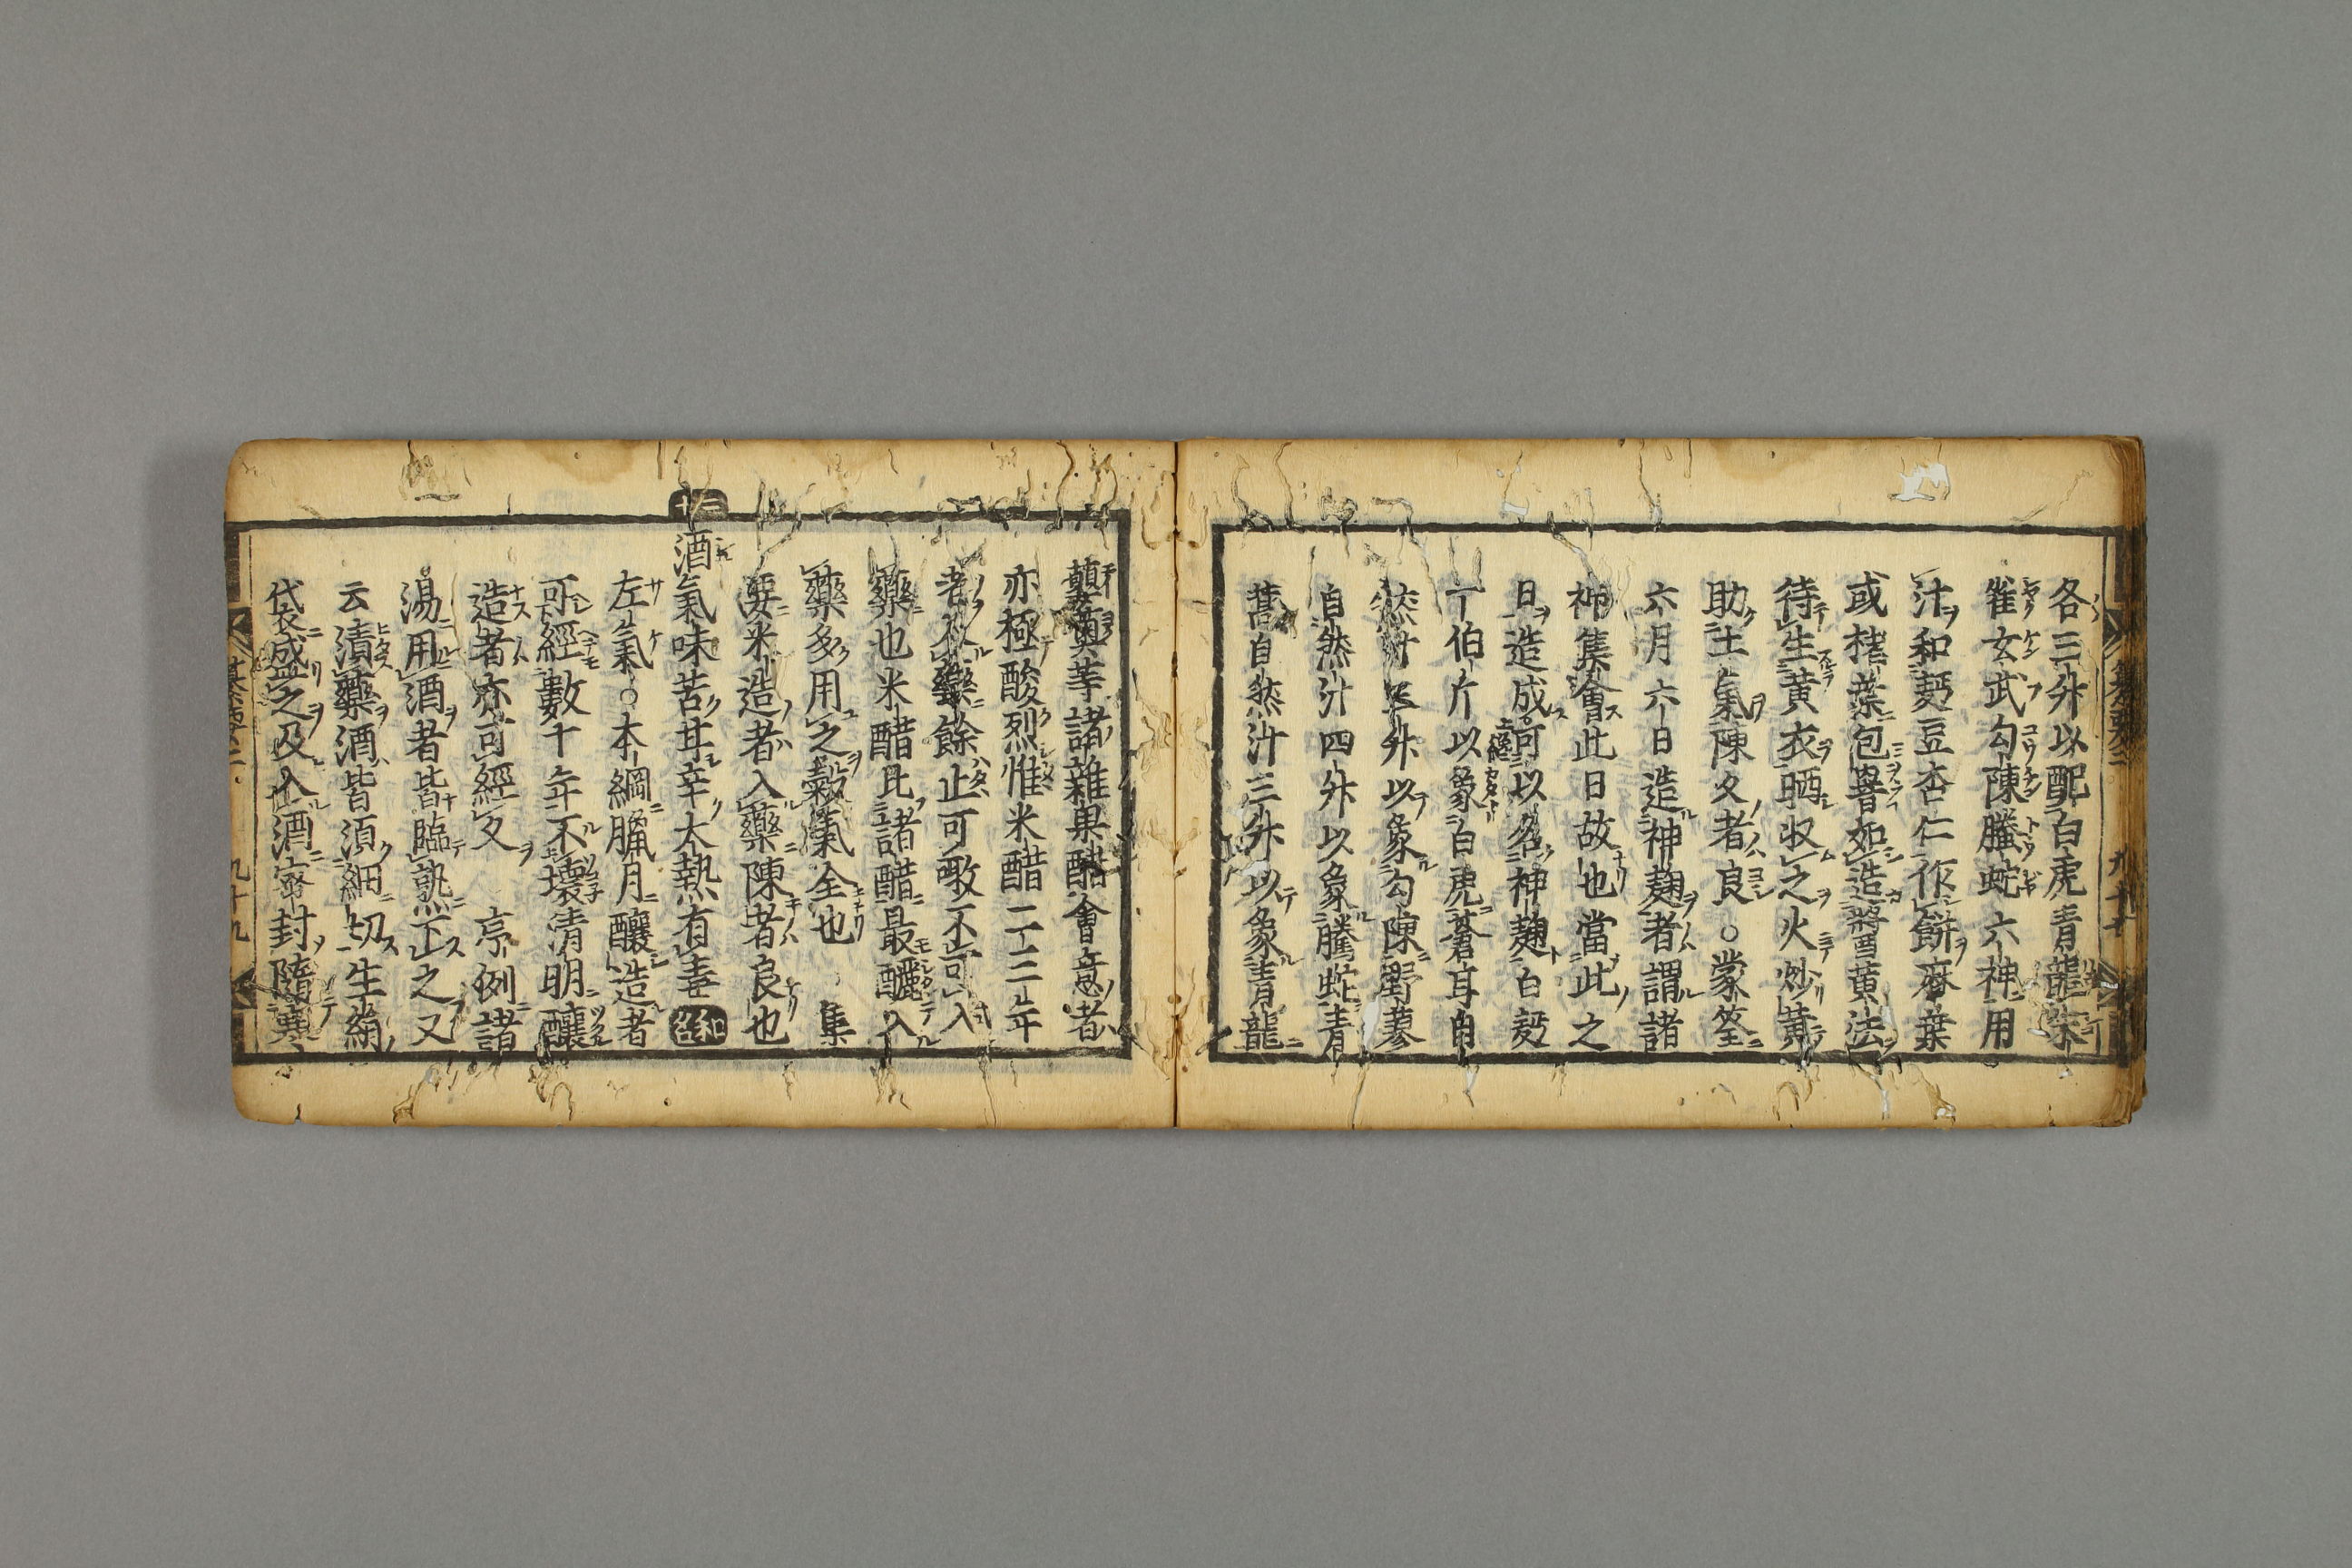 各三升以配白虎青龍朱
雀玄武勾陳螣蛇六神用
汁和麪豆杏仁作餅麻葉
或楮葉包罨如造醬黄法
待生黄衣晒収之火炒黄
助土氣陳久者良○蒙筌
六月六日造神麹者謂諸
神集會此日故也當此之
日造成可以名神麹白麪
一伯斤以象白虎蒼耳自
然汁三升以象勾陳野蓼
自然汁四升以象螣蛇青
蒿自然汁三升以象青龍
蘡薁等諸雜果醋會意者
亦極酸烈惟米醋二三年
者入藥餘止可噉不可入
藥也米醋比諸醋最釅入
藥多用之穀氣全也 集
要米造者入藥陳者良也
酒氣味苦甘辛大熱有毒 和名
左氣○本綱臘月釀造者
可經數十年不壞清明釀
造者亦可經久 亭例諸
湯用酒者皆臨熟下之又
云漬藥酒皆須細切生絹
袋盛之及入酒密封隨寒